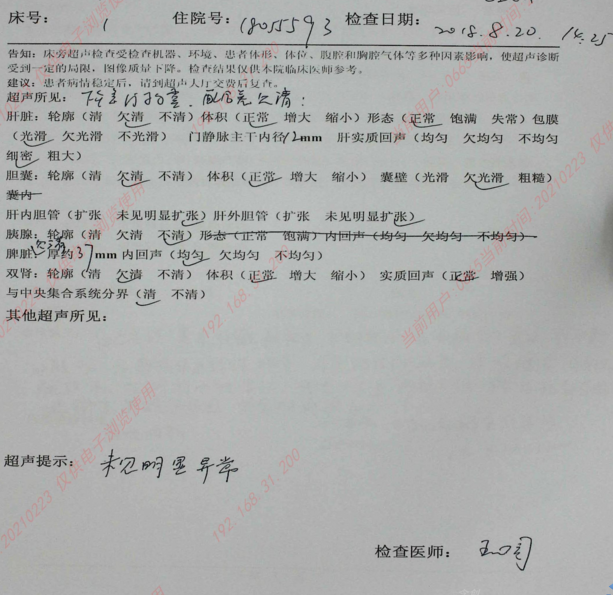 床号： 1 住院号：18055593 检查日期：2018.8.20. 14:25
告知：床旁超声检查受检查机器、环境、患者体形、体位、腹腔和胸腔气体等多种因素影响，使超声诊断
受到一定的局限，图像质量下降。检查结果仅供本院临床医师参考。
建议：患者病情稳定后，请到超声大厅交费后复查。
超声所见： 欠清：
肝脏：轮廓（清 欠清 不清）体积（正常 增大 缩小）形态（正常 饱满 失常）包膜
（光滑 欠光滑 不光滑） 门静脉主干内径12mm 肝实质回声（均匀 欠均匀 不均匀
细密 粗大）
胆囊：轮廓（清 欠清 不清） 体积（正常 增大 缩小） 囊壁（光滑 欠光滑 粗糙）
囊内
肝内胆管（扩张 未见明显扩张）肝外胆管（扩张 未见明显扩张）
胰腺：轮廓（清 欠清 不清）形态（正常 饱满）内回声（均匀 欠均匀 不均匀）
脾脏 欠清 厚约37mm内回声（均匀 欠均匀 不均匀）
双肾：轮廓（清 欠清 不清） 体积（正常 增大 缩小） 实质回声（正常 增强）
与中央集合系统分界（清 不清）
其他超声所见：
超声提示： 未见明显异常
检查医师：
20210223 仅供电子浏览使用
192.168.31.200